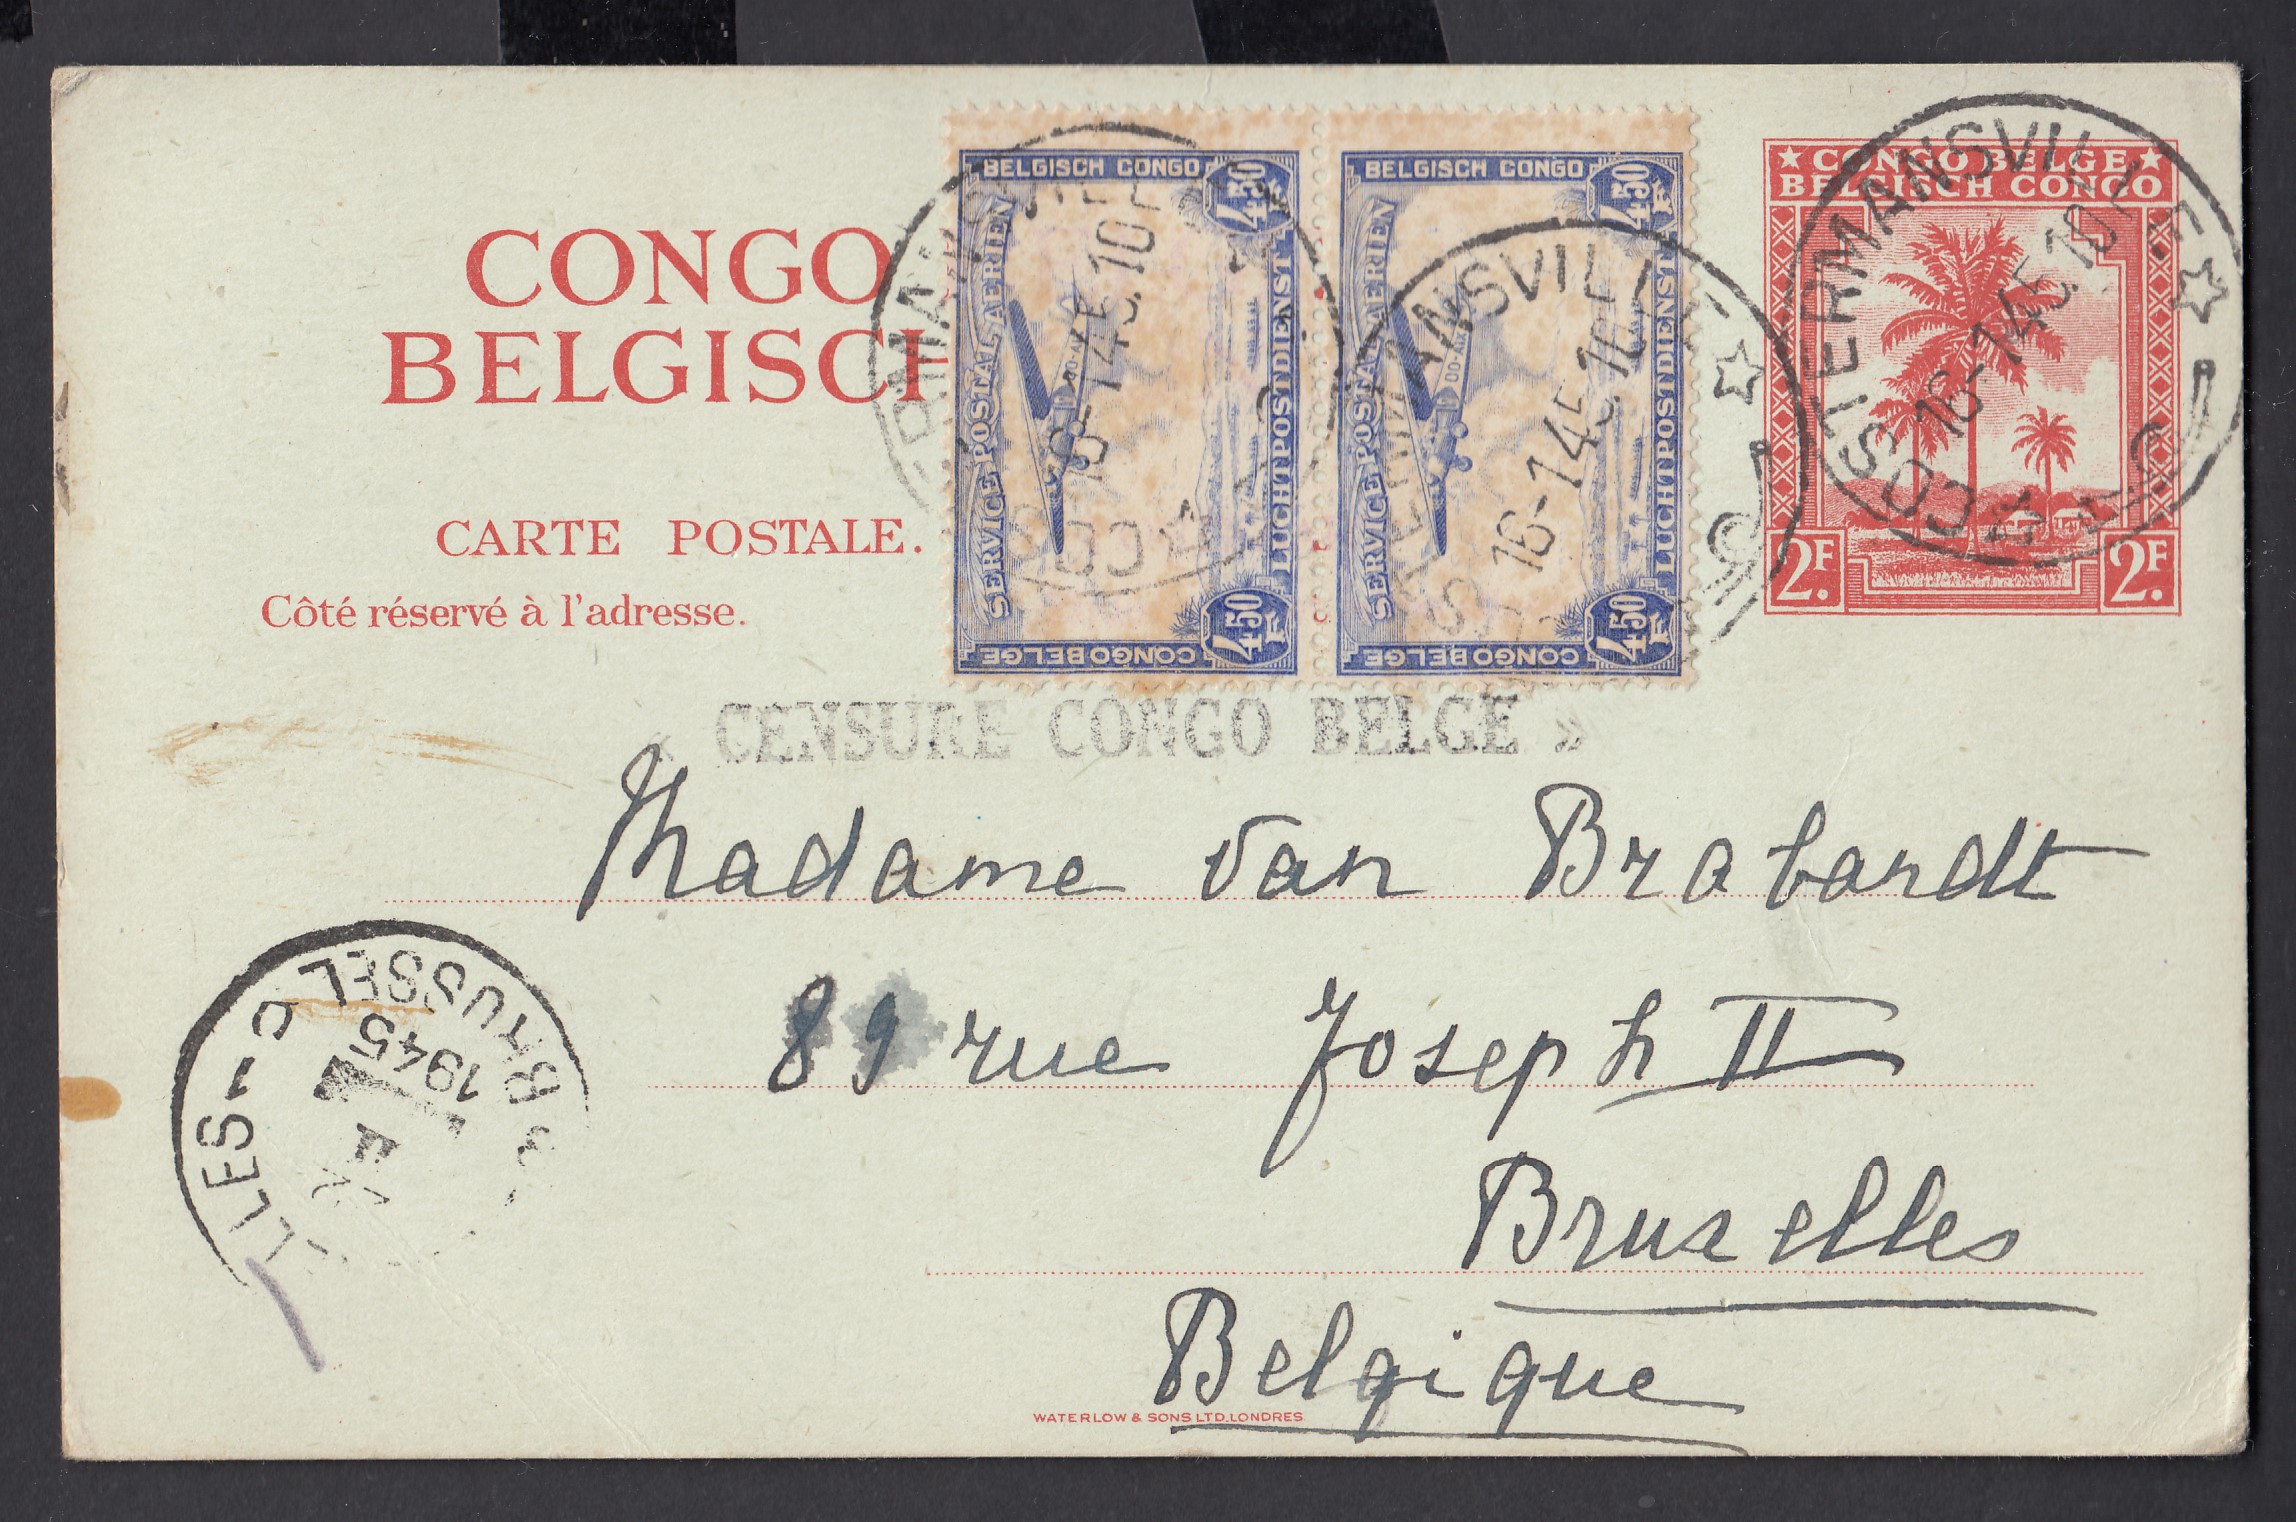 CONGO
BELGISC
CARTE POSTALE.
Côté réservé à l'adresse.
BELGISCH CONGO
4.50 F
SERVICE POSTAL AERIEN
LUCHTPOSTDIENST
OO-AI
CONGO BELGE
4.50 F
BELGISCH CONGO
4.50 F
SERVICE POSTAL AERIEN
LUCHTPOSTDIENST
OO-AI
CONGO BELGE
4.50 F
★ CONGO BELGE ★
BELGISCH CONGO
2F. 2F.
COSTERMANSVILLE
16-1 45.10
COSTERMANSVILLE
16-1 45.10
COSTERMANSVILLE
16-1 45.10
« CENSURE CONGO BELGE »
Madame van Brabandt
89 rue Joseph II
Bruxelles
Belgique
BRUSSEL
1945
LLES-1
WATERLOW & SONS LTD. LONDRES